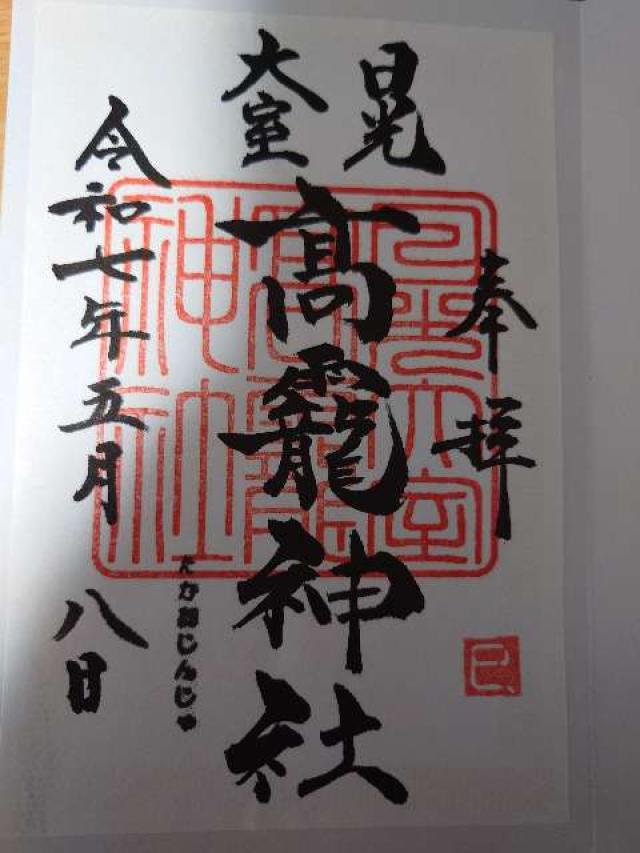 奉拝
日晃
大室
高龗神社
たかおじんじゃ
令和七年五月八日
日光大室
高龗
神社
巳